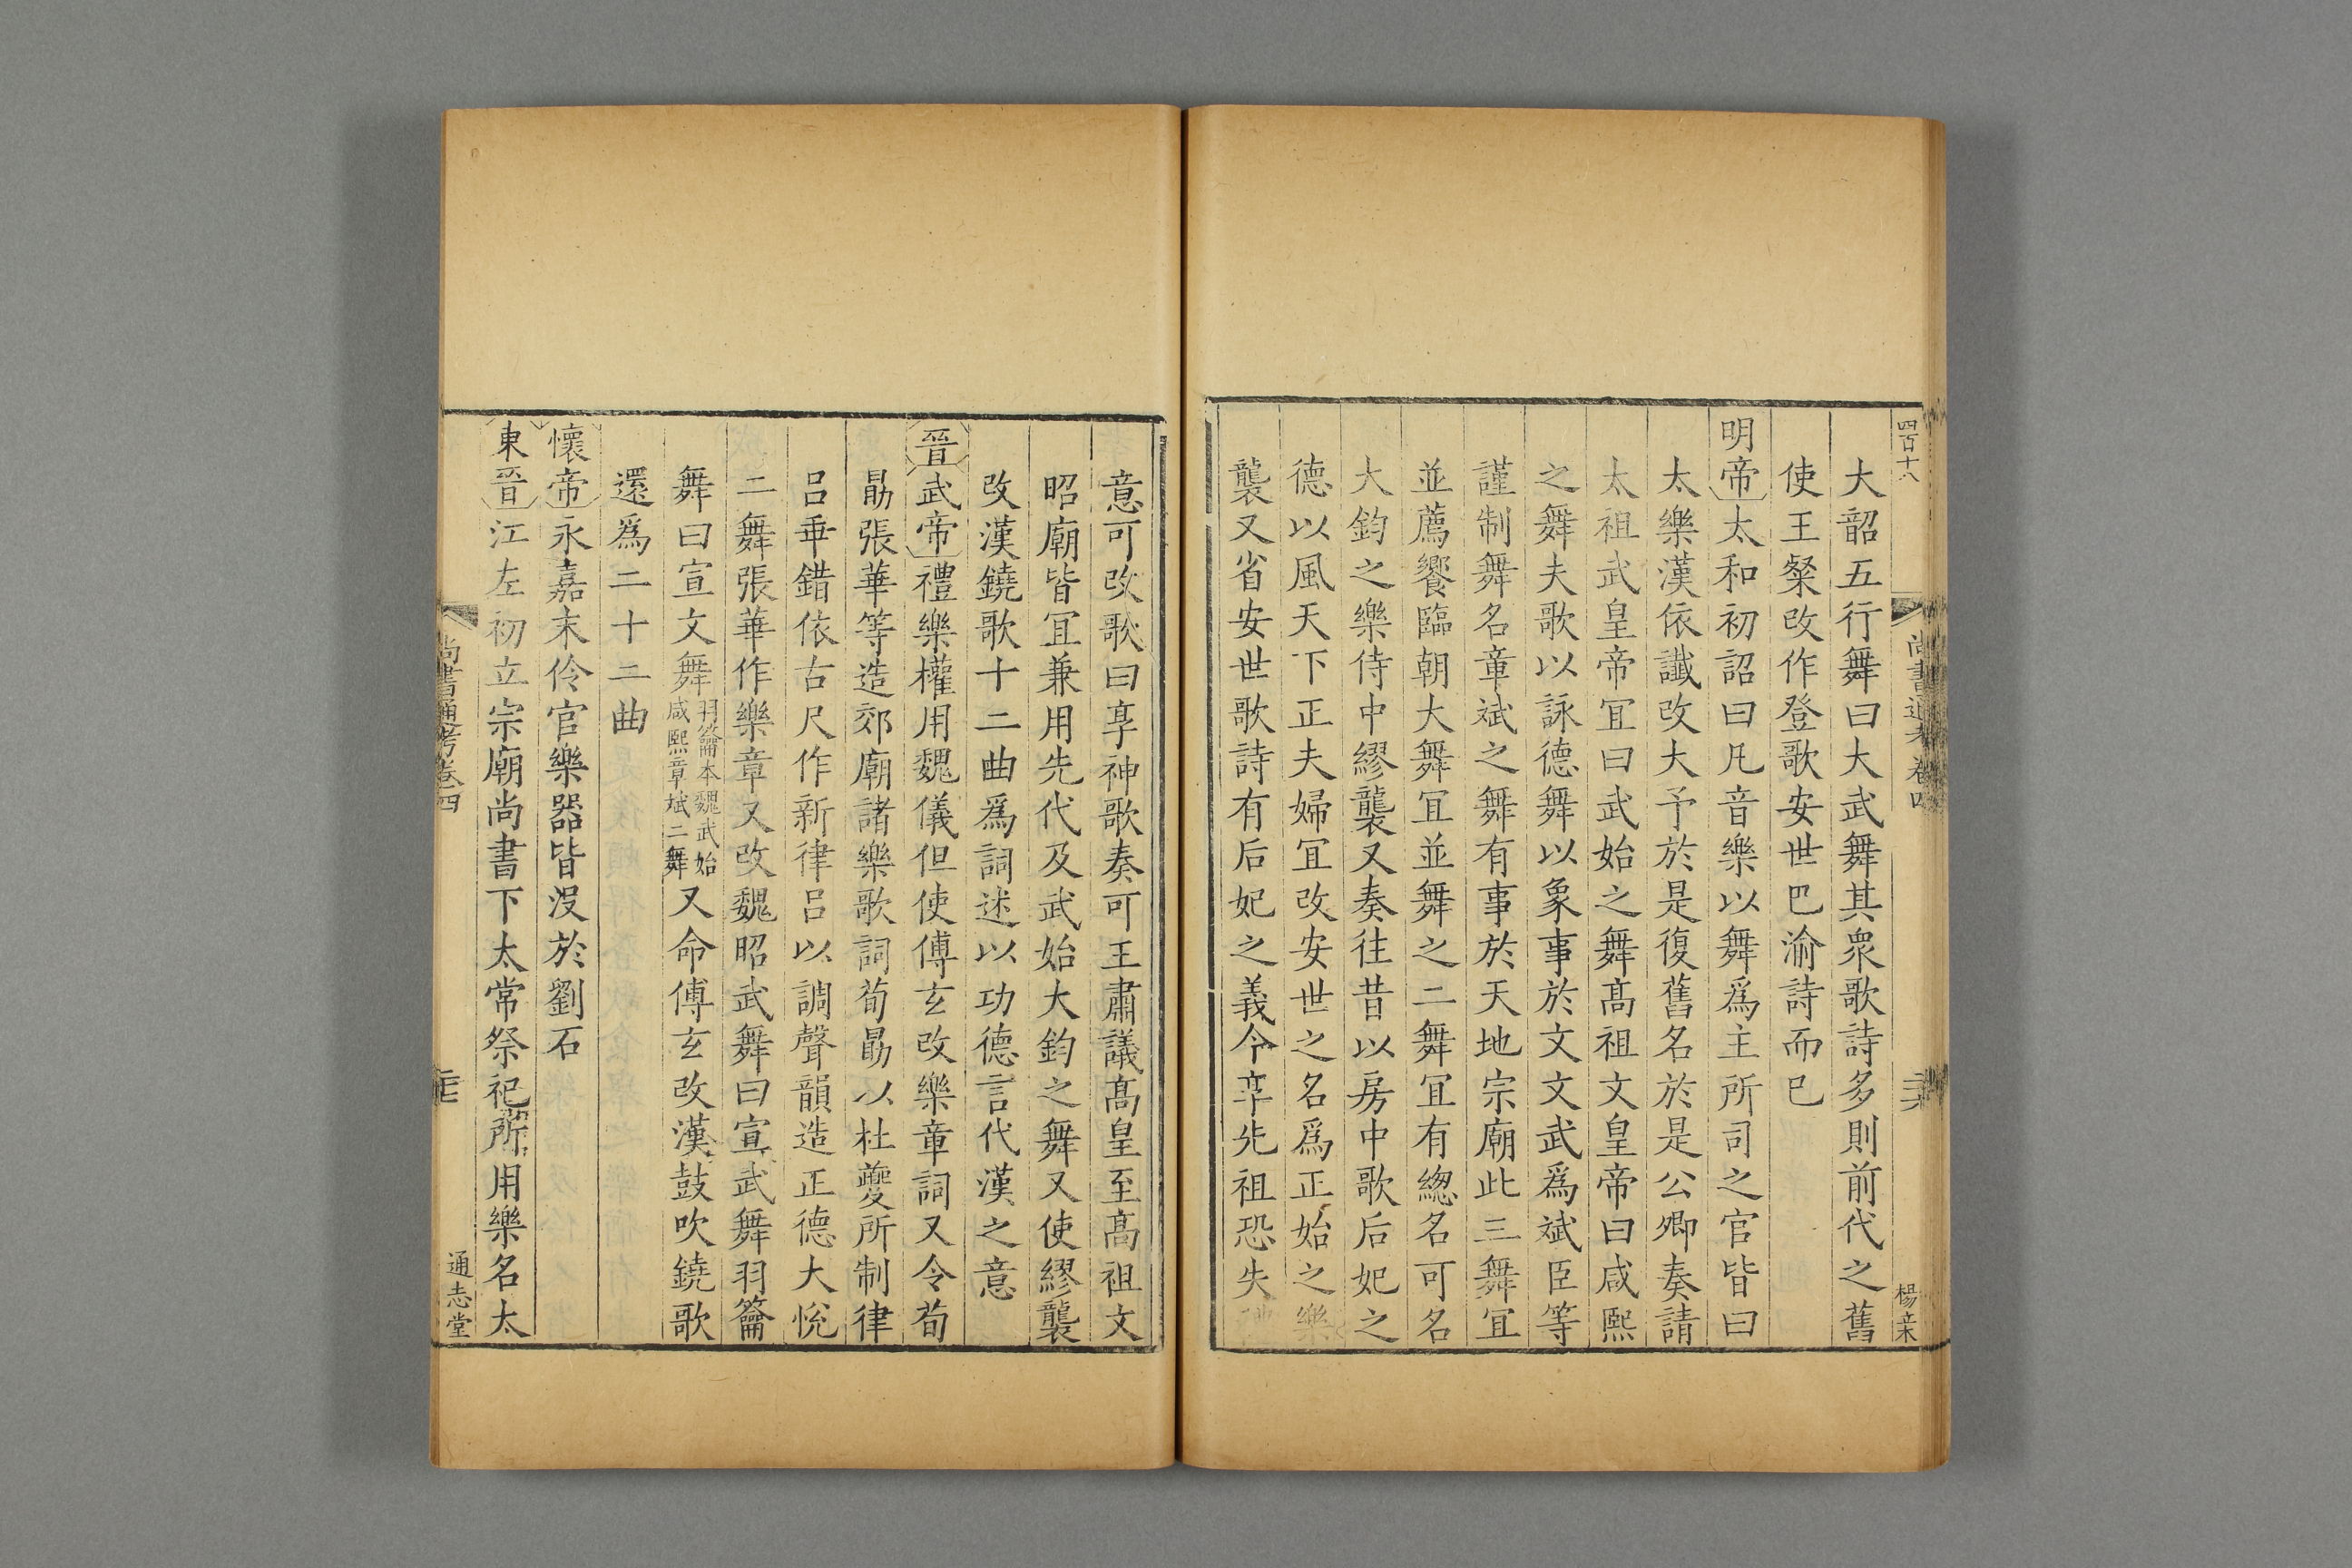 四百十八
尚書通考卷四
二十六
楊文
大韶五行舞曰大武舞其衆歌詩多則前代之舊
使王粲改作登歌安世巴渝詩而已
明帝太和初詔曰凡音樂以舞爲主所司之官皆曰
太樂漢依讖改大予於是復舊名於是公卿奏請
太祖武皇帝宜曰武始之舞高祖文皇帝曰咸熙
之舞夫歌以詠德舞以象事於文文武爲斌臣等
謹制舞名章斌之舞有事於天地宗廟此三舞宜
並薦饗臨朝大舞宜並舞之二舞宜有緫名可名
大鈞之樂侍中繆襲又奏往昔以房中歌后妃之
德以風天下正夫婦宜改安世之名爲正始之樂
襲又省安世歌詩有后妃之義令享先祖恐失
意可改歌曰享神歌奏可王肅議高皇至高祖文
昭廟皆宜兼用先代及武始大鈞之舞又使繆襲
改漢鐃歌十二曲爲詞述以功德言代漢之意
晉武帝禮樂權用魏儀但使傅玄改樂章詞又令荀
勗張華等造郊廟諸樂歌詞荀勗以杜夔所制律
呂乖錯依古尺作新律呂以調聲韻造正德大悅
二舞張華作樂章又改魏昭武舞曰宣武舞羽籥
舞曰宣文舞羽籥本魏武始咸熙章斌二舞又命傅玄改漢鼓吹鐃歌
還爲二十二曲
懷帝永嘉末伶官樂器皆没於劉石
東晉江左初立宗廟尚書下太常祭祀所用樂名太
尚書通考卷四
二十七
通志堂